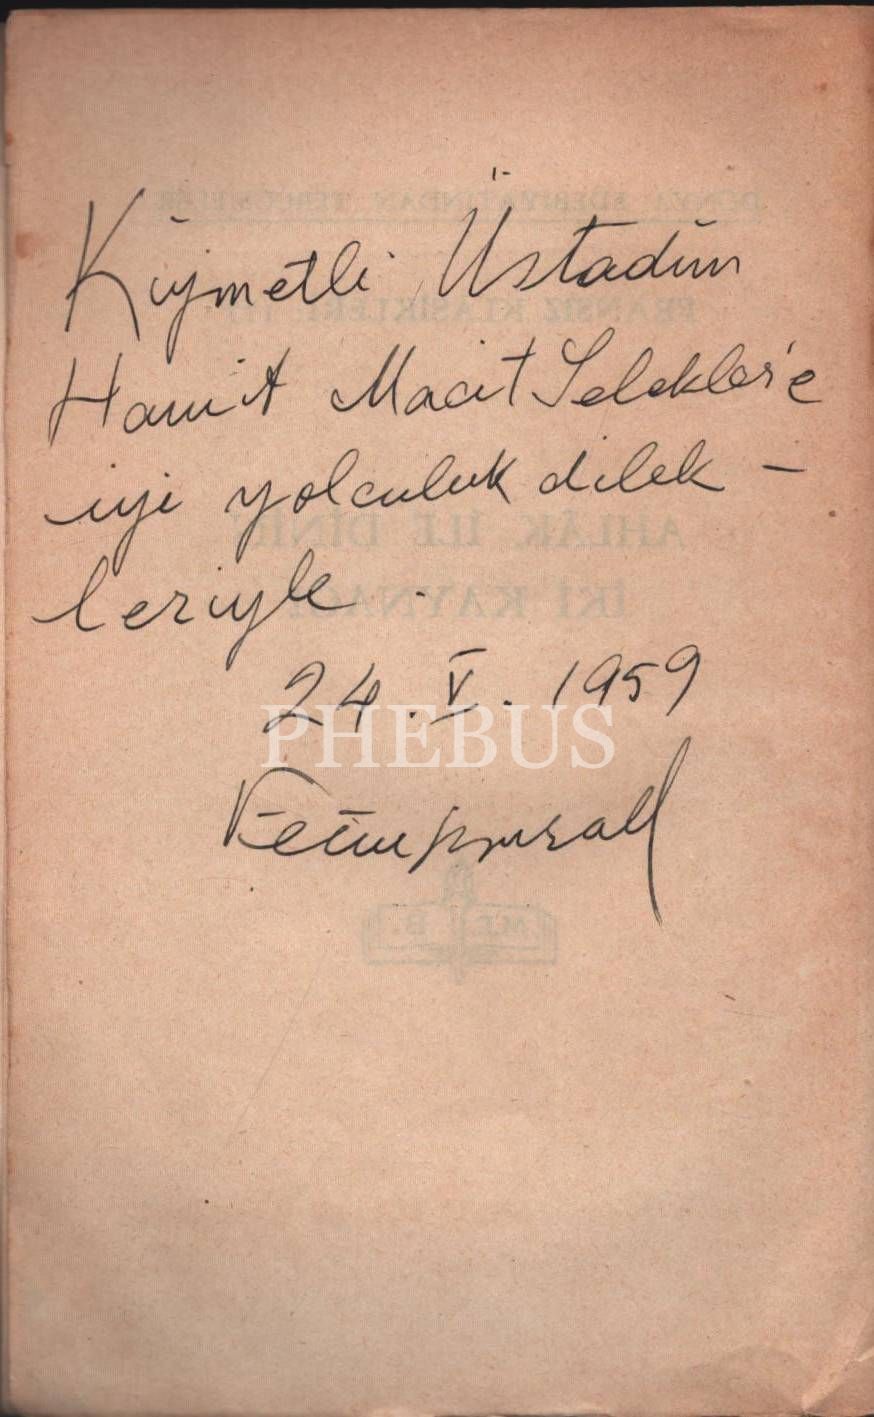 Kıymetli Üstadım
Hamit Macit Selekler'e
iyi yolculuk dilek –
leriyle.
24.V.1959
PHEBUS
DÜNYA EDEBİYATINDAN TERCÜMELER
FRANSIZ KLASİKLERİ
AHLÂK İLE DİNİN
İKİ KAYNAĞI
M. E. B.